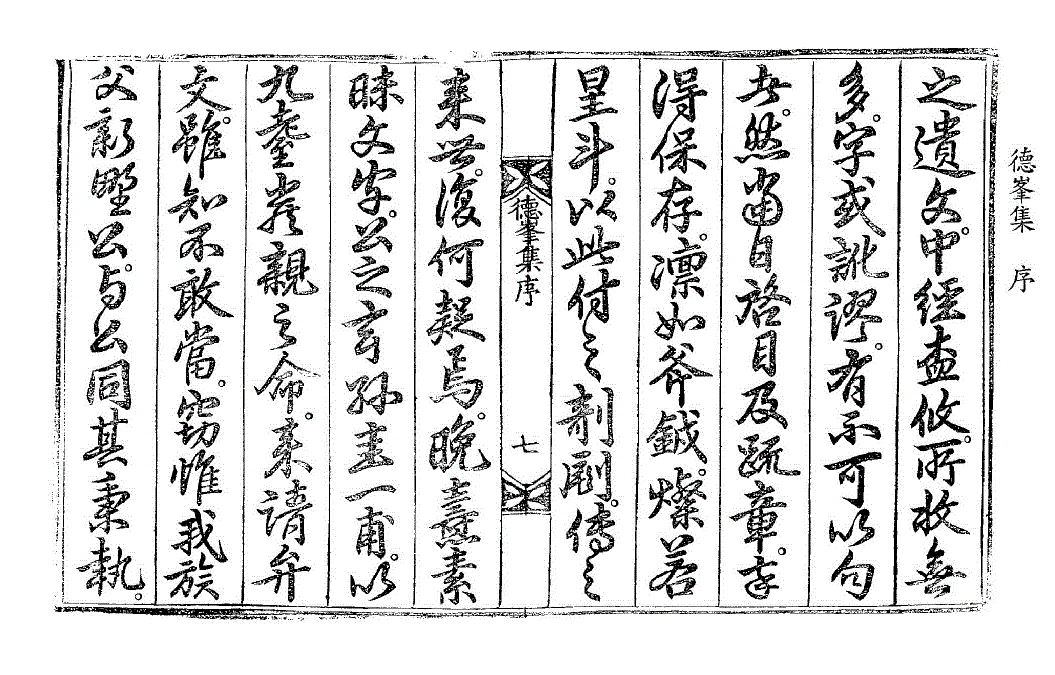 德峯集 序
之遺文。中經攸。所收無
多。字或訛謬。有不可以句
者。然當日啓目及疏章。幸
得保存。凜如斧鉞。燦若
星斗。以此付之剞劂。傳之
德峯集序 七
來世。復何疑焉。晩熹素
昧文字。公之玄孫圭一甫。以
九耋嚴親之命。來請弁
文。雖知不敢當。窃惟我族
父新野公。与公同其秉執。